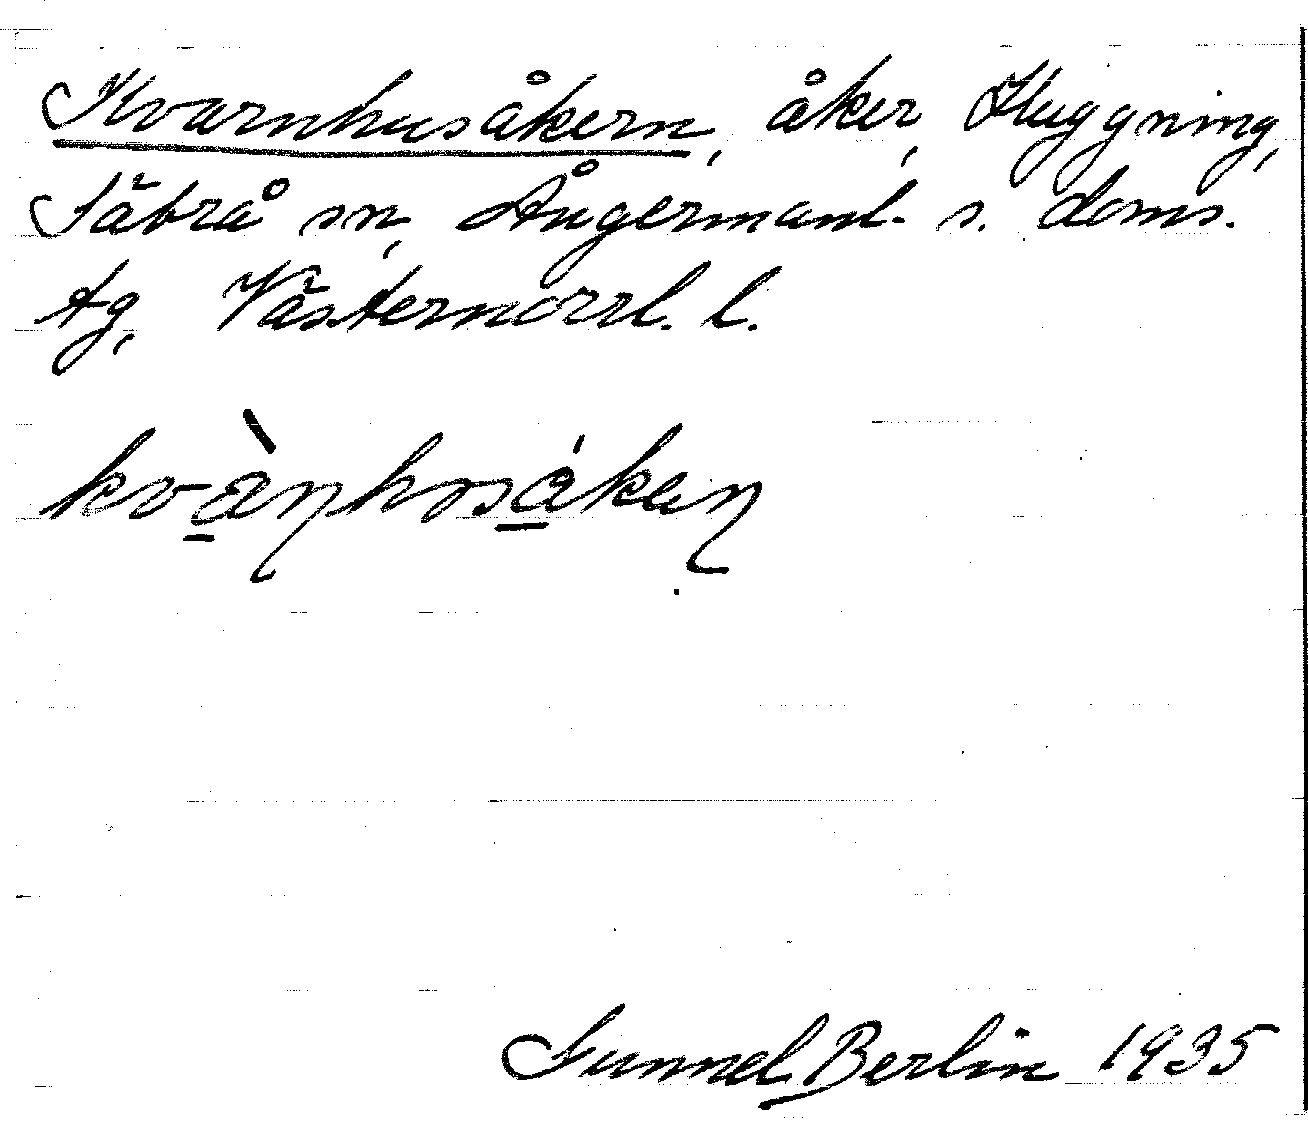 Kvarnhusåkern, åker, Huggning,
Säbrå sn, Ångermanl. s. doms.
tg, Västernorrl. l.
kvànhusåkan
Gunnel Berlin 1935